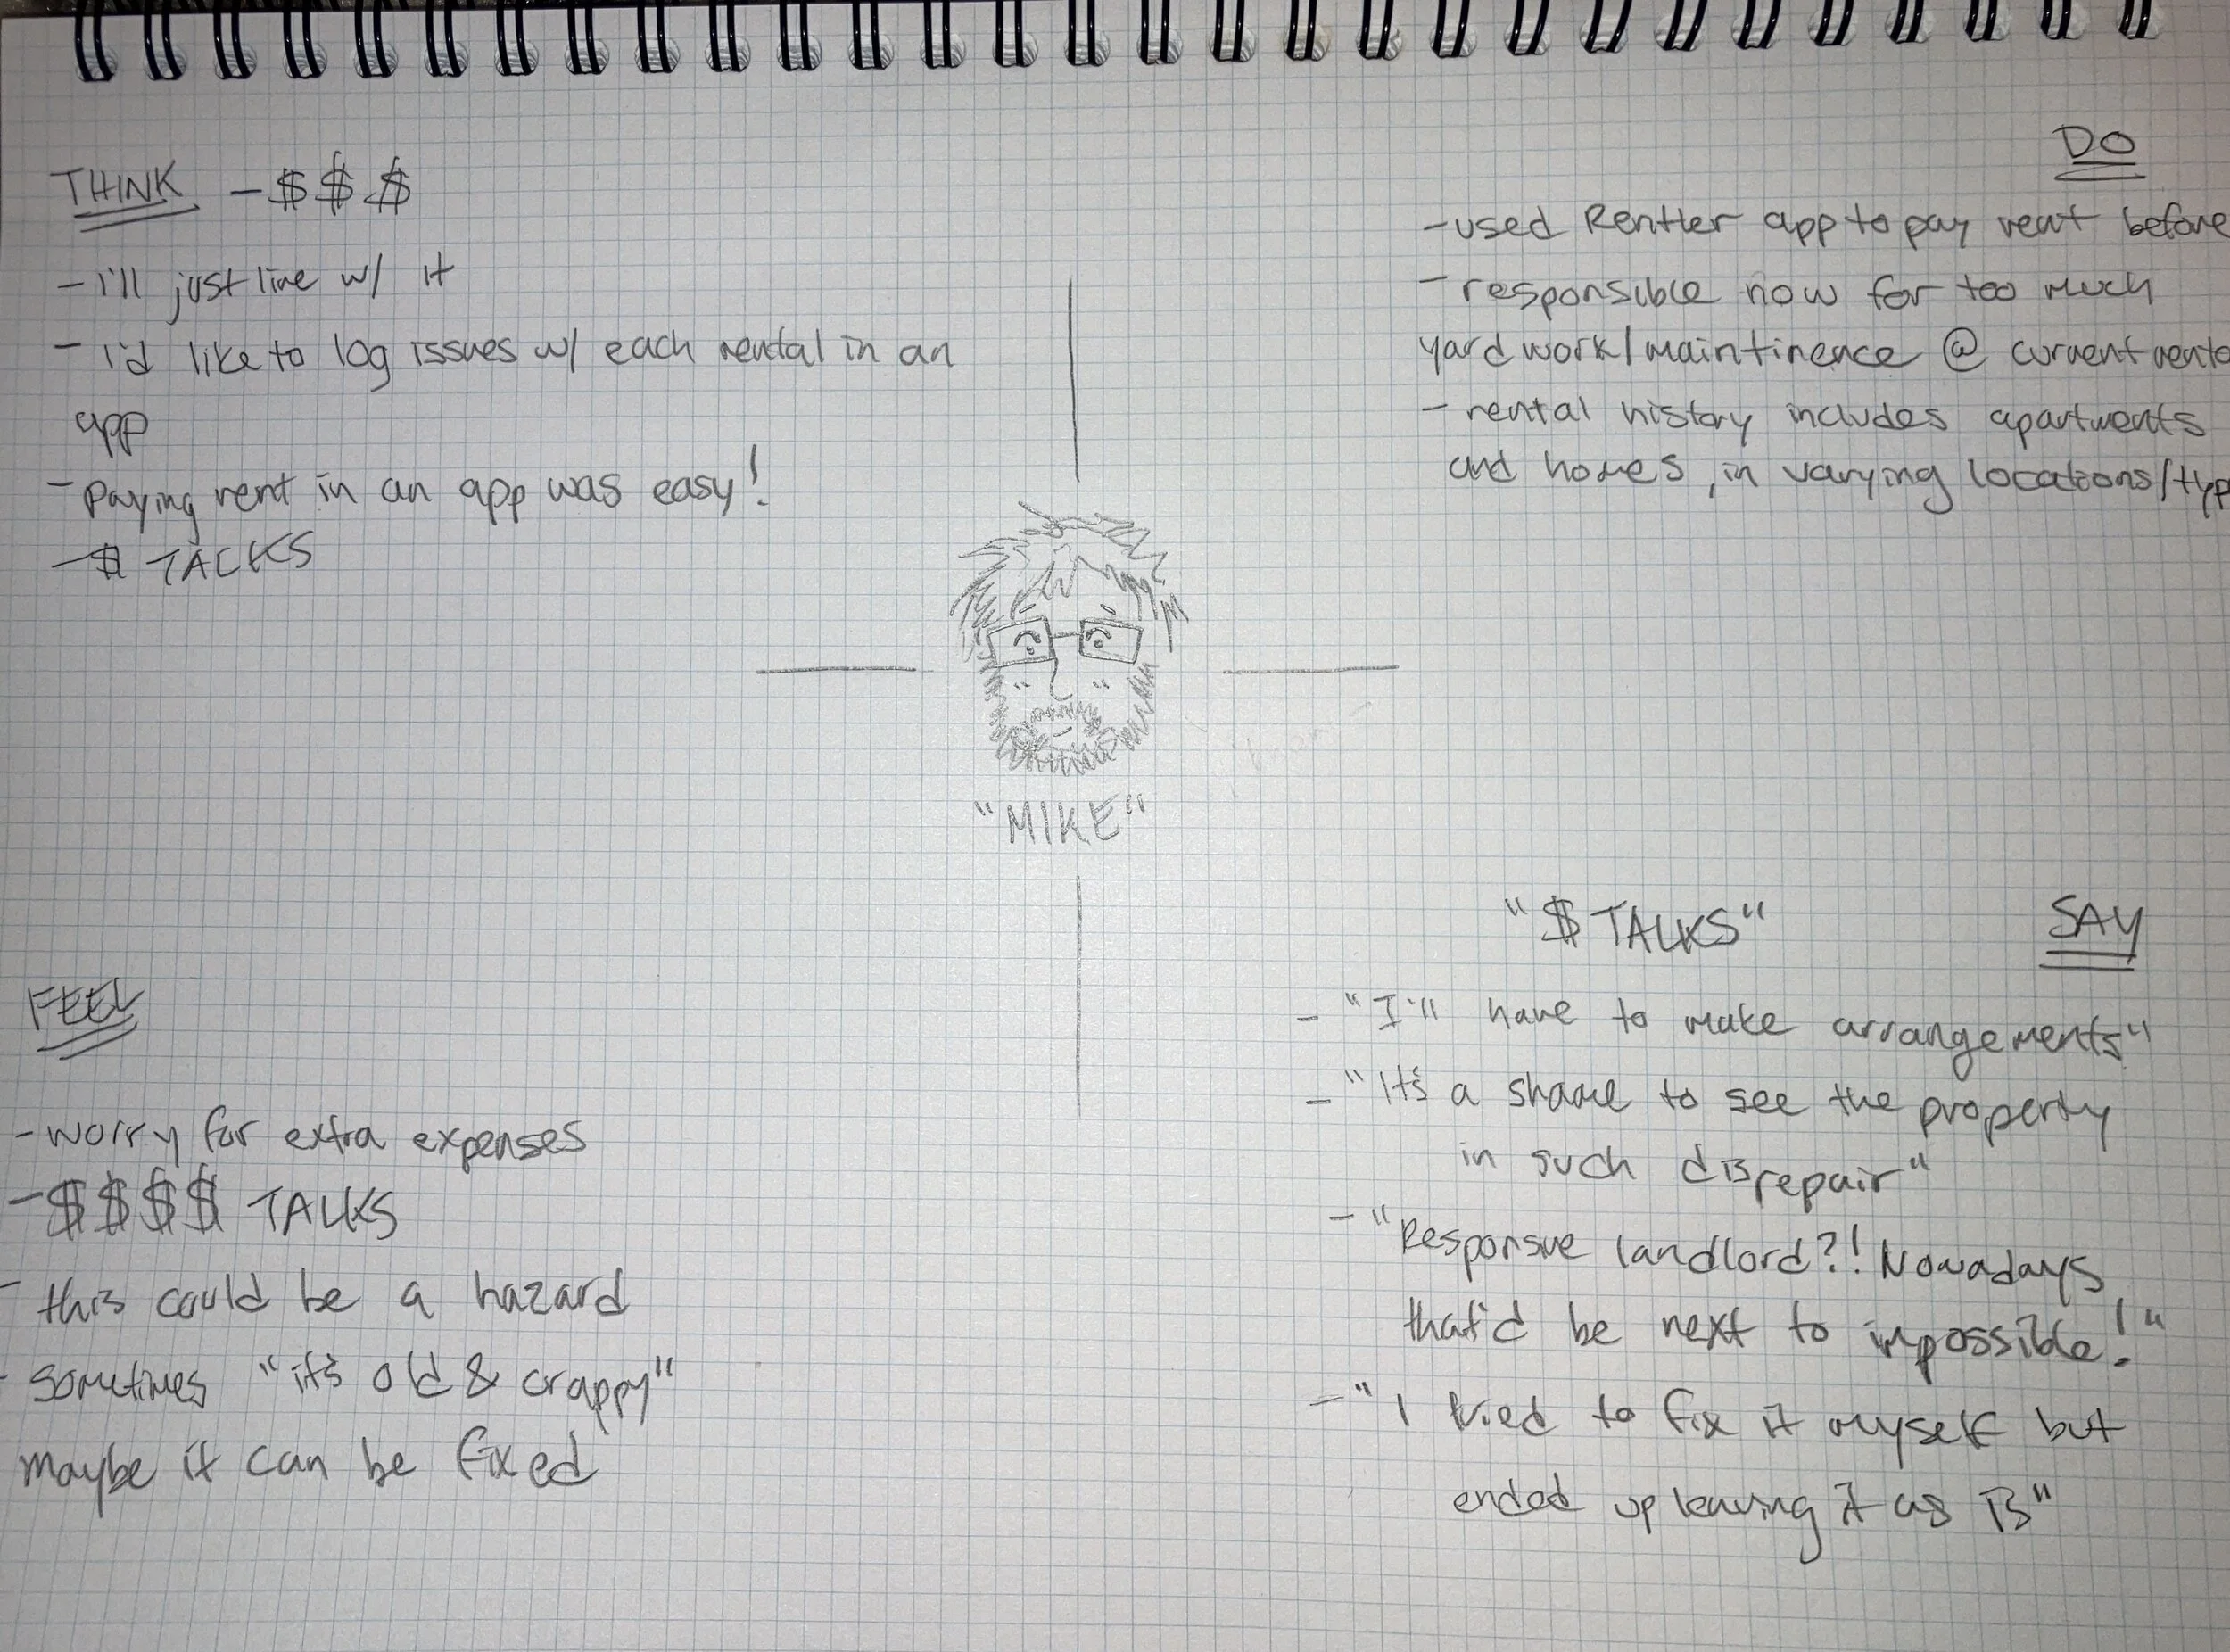 THINK - $ $ $
- I'll just live w/ it
- I'd like to log issues w/ each rental in an
app
- paying rent in an app was easy!
- $ TALKS
DO
- used Rentler app to pay rent before
- responsible now for too much
yard work/maintinence @ current
- rental history includes apartments
and homes, in varying locations/typ
"MIKE"
FEEL
- worry for extra expenses
- $ $ $ $ TALKS
- this could be a hazard
- sometimes "it's old & crappy"
maybe it can be fixed
"$ TALKS"
SAY
- "I'll have to make arrangements"
- "It's a shame to see the property
in such disrepair"
- "Responsive landlord?! Nowadays
that'd be next to impossible!"
- "I tried to fix it myself but
ended up leaving it as is"